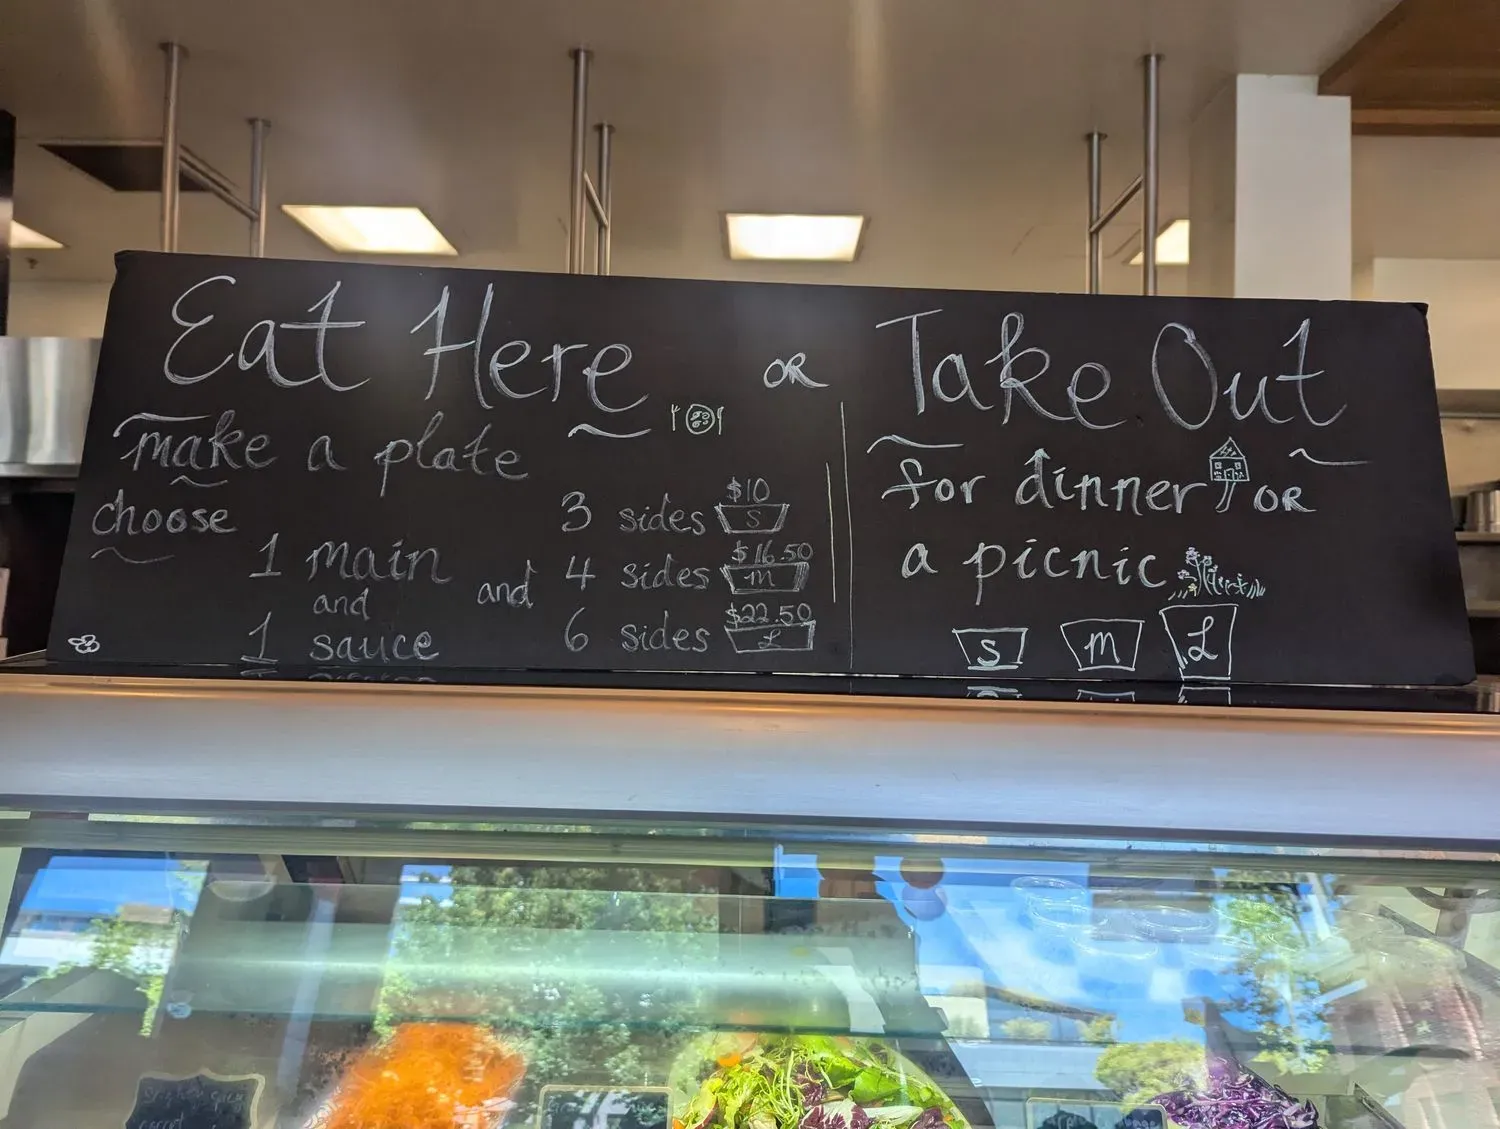 Eat Here OR Take Out
make a plate
choose
1 main
and
1 sauce
and
3 sides $10 S
4 sides $16.50 M
6 sides $22.50 L
for dinner OR
a picnic
S M L